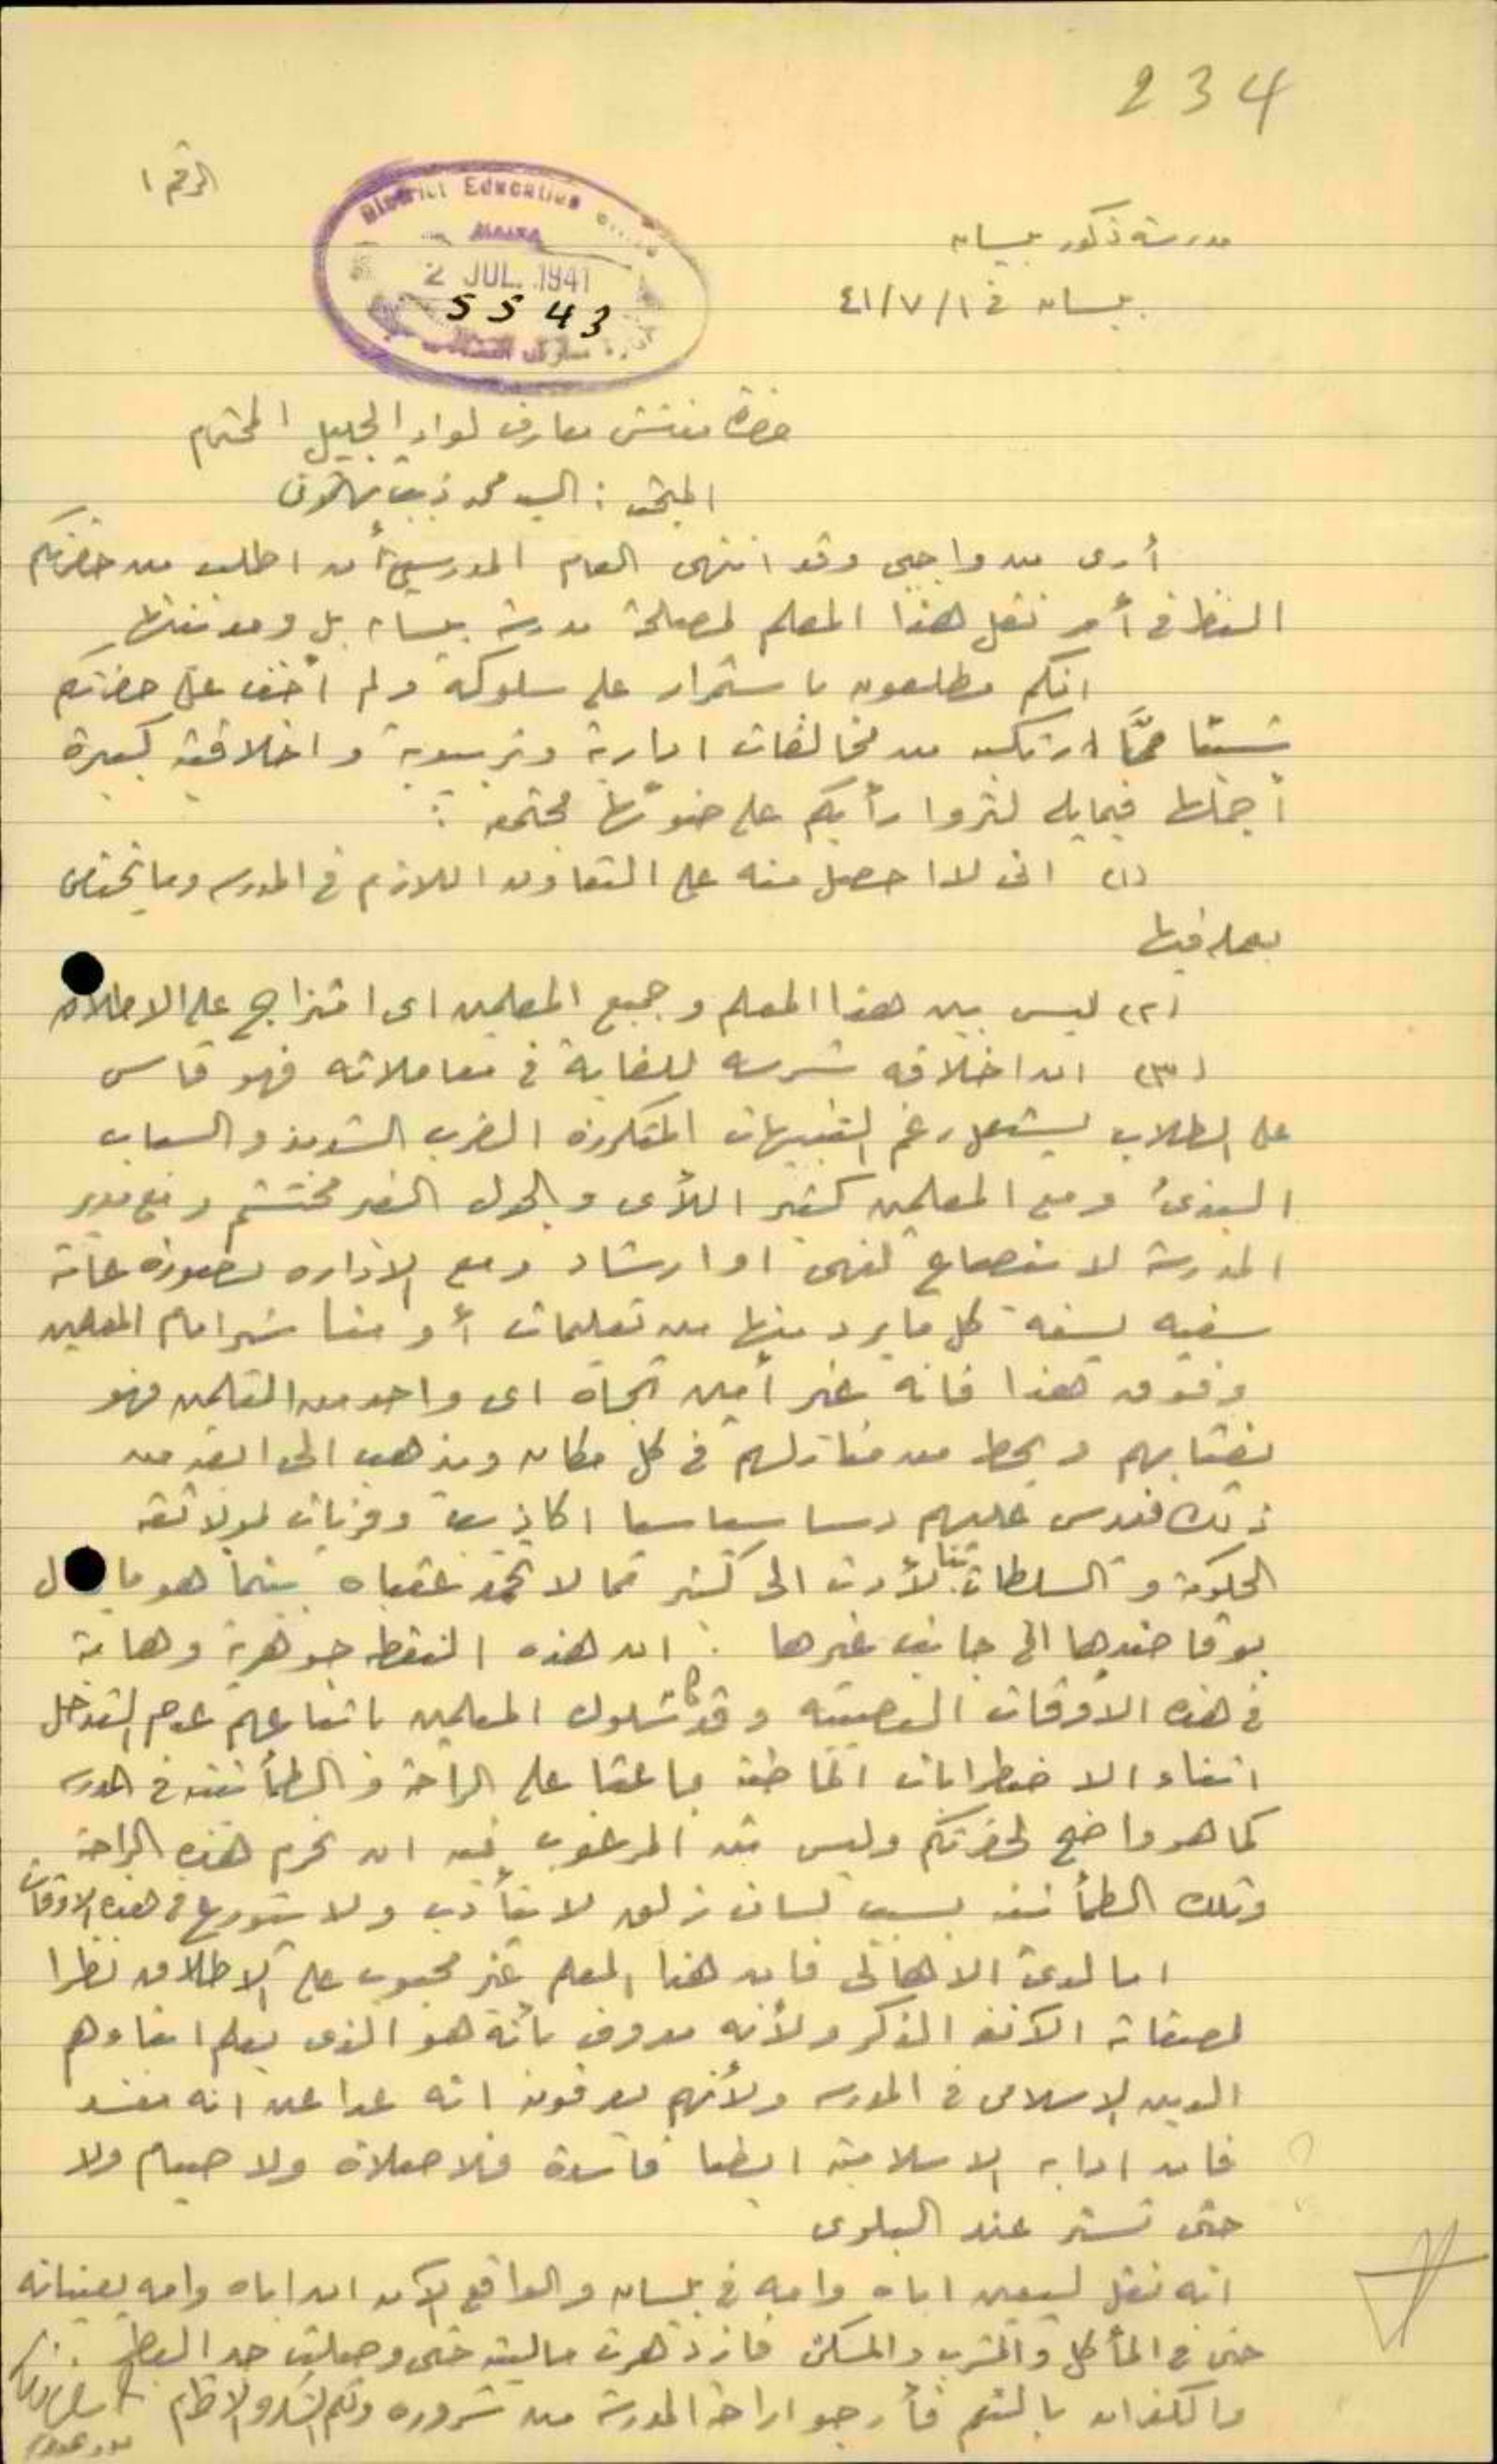 234
الرقم ١
District Education
2 JUL. 1941
5543
مدرسة ذكور بيسان
بيسان في ٤١/٧/١
حضرة مفتش معارف لواء الجليل المحترم
المبحث : السيد محمد ذيب
أرى من واجبي وقد انتهى العام المدرسي أن اطلب من حضرتكم
النظر في أمر نقل هذا المعلم لمصلحة مدرسة بيسان بل ومدينتها
انكم مطلعون باستمرار على سلوكه ولم أخف على حضرتكم
شيئا ممّا ارتكب من مخالفات ادارية وتربوية واخلاقية كبيرة
أجملها فيما يلي لتروا رأيكم على ضوئها مجتمعة :
(١) اني لا احصل منه على التعاون اللازم في المدرسه وما يختص
بعمله فيها
(٢) ليس بين هذا المعلم وجميع المعلمين اي امتزاج على الاطلاق
(٣) ان اخلاقه شرسه للغاية في معاملاته فهو قاس
على الطلاب يستعمل رغم التنبيهات المتكررة الضرب الشديد والسباب
البذئ ومع المعلمين كثير اللأي والجدل الغير محتشم ومع مدير
المدرسة لا ينصاع لنهي او ارشاد ومع الاداره بصورة عامة
سفيه يسفه كل ما يرد منها من تعليمات أو مناشير امام المعلمين
وفوق هذا فانه غير أمين تجاه اي واحد من المعلمين فهو
يغتابهم ويحط من منازلهم في كل مكان ويذهب الى ابعد من
ذلك فيدس عليهم دسا سياسيا اكاذيب وفريات لولا ثقة
الحكومة والسلطات بنا لأدت الى كثير مما لا تحمد عقباه بينما هو ما
بوقا ضدها الى جانب غيرها . ان هذه النقطه جوهرية وهامة
في هذه الاوقات العصيبه وقد كان سلوك المعلمين باتباعهم عدم التدخل
اثناء الاضطرابات الماضية باعثا على الراحة والطمأنينة في المدرسه
كما هو واضح لحضرتكم وليس من المرغوب فيه ان نحرم هذه الراحة
وتلك الطمأنينه بسبب لسان زلق لا يتأدب ولا يتورع في هذه الاوقات
اما لدى الاهالي فان هذا المعلم غير محبوب على الاطلاق نظرا
لصفاته الآنفة الذكر ولأنه معروف بأنه هو الذي يعلم ابناءهم
الدين الاسلامي في المدرسه ولأنهم يعرفون انه عدا عن انه مفسد
فان ادابه الاسلامية ايضا فاسدة فلا صلاة ولا صيام ولا
حتى تستر عند البلوى
انه نقل ليعين اباه وامه في بيسان والواقع الآن ان اباه وامه يعينانه
حتى في المأكل والمشرب والمسكن فازدهرت ماليته حتى وصلت حد البطر
والكفران بالنعم فأرجو اراحة المدرسة من شروره ولكم الشكر والاحترام